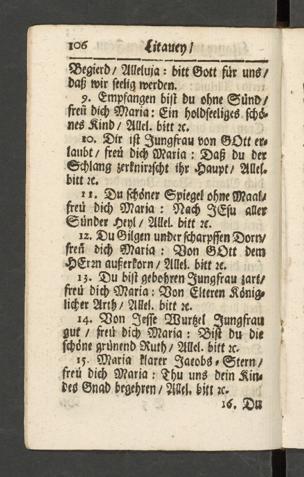 106 Litaney/
Begierd/ Alleluja: bitt Gott für uns/
daß wir seelig werden.
9. Empfangen bist du ohne Sünd/
freü dich Maria: Ein holdseeliges schö-
nes Kind/ Allel. bitt ꝛc.
10. Dir ist Jungfrau von GOtt er-
laubt/ freü dich Maria: Daß du der
Schlang zerknirscht ihr Haupt/ Allel.
bitt ꝛc.
11. Du schöner Spiegel ohne Maal/
freü dich Maria: Nach JEsu aller
Sünder Heyl/ Allel. bitt ꝛc.
12. Du Gilgen under scharpffen Dorn/
freü dich Maria: Von GOtt dem
HErrn außerkorn/ Allel. bitt ꝛc.
13. Du bist gebohren Jungfrau zart/
freü dich Maria: Von Elteren König-
licher Arth/ Allel. bitt ꝛc.
14. Von Jesse Wurtzel Jungfrau
gut/ freü dich Maria: Bist du die
schöne grünend Ruth/ Allel. bitt ꝛc.
15. Maria klarer Jacobs-Stern/
freü dich Maria: Thu uns dein Kin-
des Gnad begehren/ Allel. bitt ꝛc.
16. Du